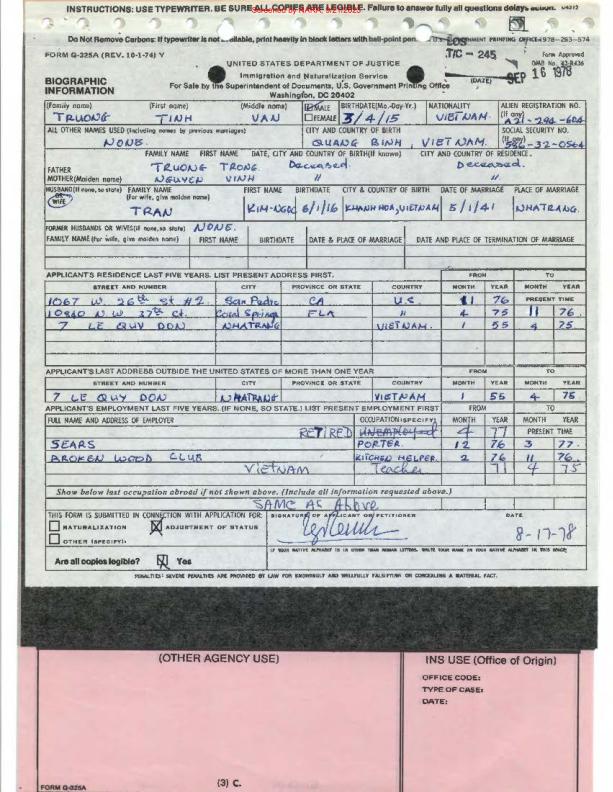 INSTRUCTIONS: USE TYPEWRITER. BE SURE ALL COPIES ARE LEGIBLE. Failure to answer fully all questions delays action.
Do Not Remove Carbons: If typewriter is not available, print heavily in block letters with ball-point pen.
FORM G-325A (REV. 10-1-74) Y
TIC - 245
Form Approved
UNITED STATES DEPARTMENT OF JUSTICE
Immigration and Naturalization Service
BIOGRAPHIC INFORMATION
For Sale by the Superintendent of Documents, U.S. Government Printing Office
Washington, DC 20402
(DATE) SEP 16 1978
(Family name) (First name) (Middle name) MALE FEMALE BIRTHDATE(Mo.-Day-Yr.) NATIONALITY ALIEN REGISTRATION NO. (If any)
TRUONG TINH VAN 3/4/15 VIETNAM
ALL OTHER NAMES USED (Including names by previous marriages) CITY AND COUNTRY OF BIRTH SOCIAL SECURITY NO. (If any)
NONE. QUANG BINH, VIETNAM.
FAMILY NAME FIRST NAME DATE, CITY AND COUNTRY OF BIRTH(If known) CITY AND COUNTRY OF RESIDENCE.
FATHER TRUONG TRONG. Deceased. Deceased.
MOTHER(Maiden name) NGUYEN VINH " "
HUSBAND(If none, so state) OR WIFE FAMILY NAME (For wife, give maiden name) FIRST NAME BIRTHDATE CITY & COUNTRY OF BIRTH DATE OF MARRIAGE PLACE OF MARRIAGE
TRAN KIM-NGOC 6/1/16 KHANH HOA, VIETNAM 5/1/41 NHATRANG.
FORMER HUSBANDS OR WIVES(If none, so state) NONE.
FAMILY NAME(For wife, give maiden name) FIRST NAME BIRTHDATE DATE & PLACE OF MARRIAGE DATE AND PLACE OF TERMINATION OF MARRIAGE
APPLICANT'S RESIDENCE LAST FIVE YEARS. LIST PRESENT ADDRESS FIRST. FROM TO
STREET AND NUMBER CITY PROVINCE OR STATE COUNTRY MONTH YEAR MONTH YEAR
1067 W. 26th St #2 San Pedro CA U.S. 11 76 PRESENT TIME
10840 N.W. 37th Ct. Coral Springs FLA " 4 75 11 76.
7 LE QUY DON NHATRANG VIETNAM. 1 55 4 75.
APPLICANT'S LAST ADDRESS OUTSIDE THE UNITED STATES OF MORE THAN ONE YEAR FROM TO
STREET AND NUMBER CITY PROVINCE OR STATE COUNTRY MONTH YEAR MONTH YEAR
7 LE QUY DON NHATRANG VIETNAM 1 55 4 75
APPLICANT'S EMPLOYMENT LAST FIVE YEARS. (IF NONE, SO STATE.) LIST PRESENT EMPLOYMENT FIRST FROM TO
FULL NAME AND ADDRESS OF EMPLOYER OCCUPATION(SPECIFY) MONTH YEAR MONTH YEAR
RETIRED UNEMPLOYED 4 77 PRESENT TIME
SEARS PORTER. 12 76 3 77.
BROKEN WOOD CLUB KITCHEN HELPER. 2 76 11 76.
VIETNAM Teacher 71 4 75
Show below last occupation abroad if not shown above. (Include all information requested above.)
SAME AS Above
THIS FORM IS SUBMITTED IN CONNECTION WITH APPLICATION FOR: SIGNATURE OF APPLICANT OR PETITIONER DATE
NATURALIZATION ADJUSTMENT OF STATUS
OTHER (SPECIFY):
8-17-78
IF YOUR NATIVE ALPHABET IS IN OTHER THAN ROMAN LETTERS, WRITE YOUR NAME IN YOUR NATIVE ALPHABET IN THIS SPACE:
Are all copies legible? Yes
PENALTIES: SEVERE PENALTIES ARE PROVIDED BY LAW FOR KNOWINGLY AND WILLFULLY FALSIFYING OR CONCEALING A MATERIAL FACT.
(OTHER AGENCY USE) INS USE (Office of Origin)
OFFICE CODE:
TYPE OF CASE:
DATE:
FORM G-325A (3) C.